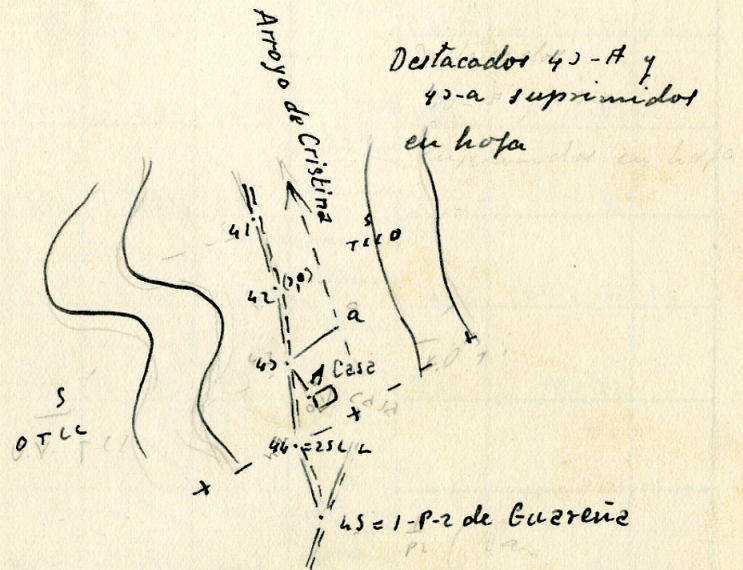 Arroyo de Cristina
Destacados 43-A y
43-a suprimidos
en hoja
S
TLLO
41
42
a
43
A Casa
X
S
OTLL
44 = 25LL
X
45 = 1-P-2 de Guareña